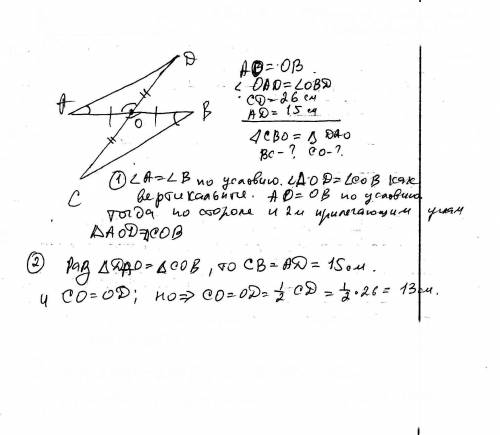 D
A
O
B
C
AO = OB
∠ OAD = ∠OBD
CD = 26 см
AD = 15 см
△CBO = △ DAO
BC - ? CO - ?
① ∠A = ∠B по условию. ∠AOD = ∠COB как
вертикальные. AO = OB по условию
тогда по стороне и 2м прилегающим углам
△AOD = △COB
② Раз △DAO = △COB, то CB = AD = 15 см.
и CO = OD; но ⇒ CO = OD = 1/2 CD = 1/2 · 26 = 13 см.